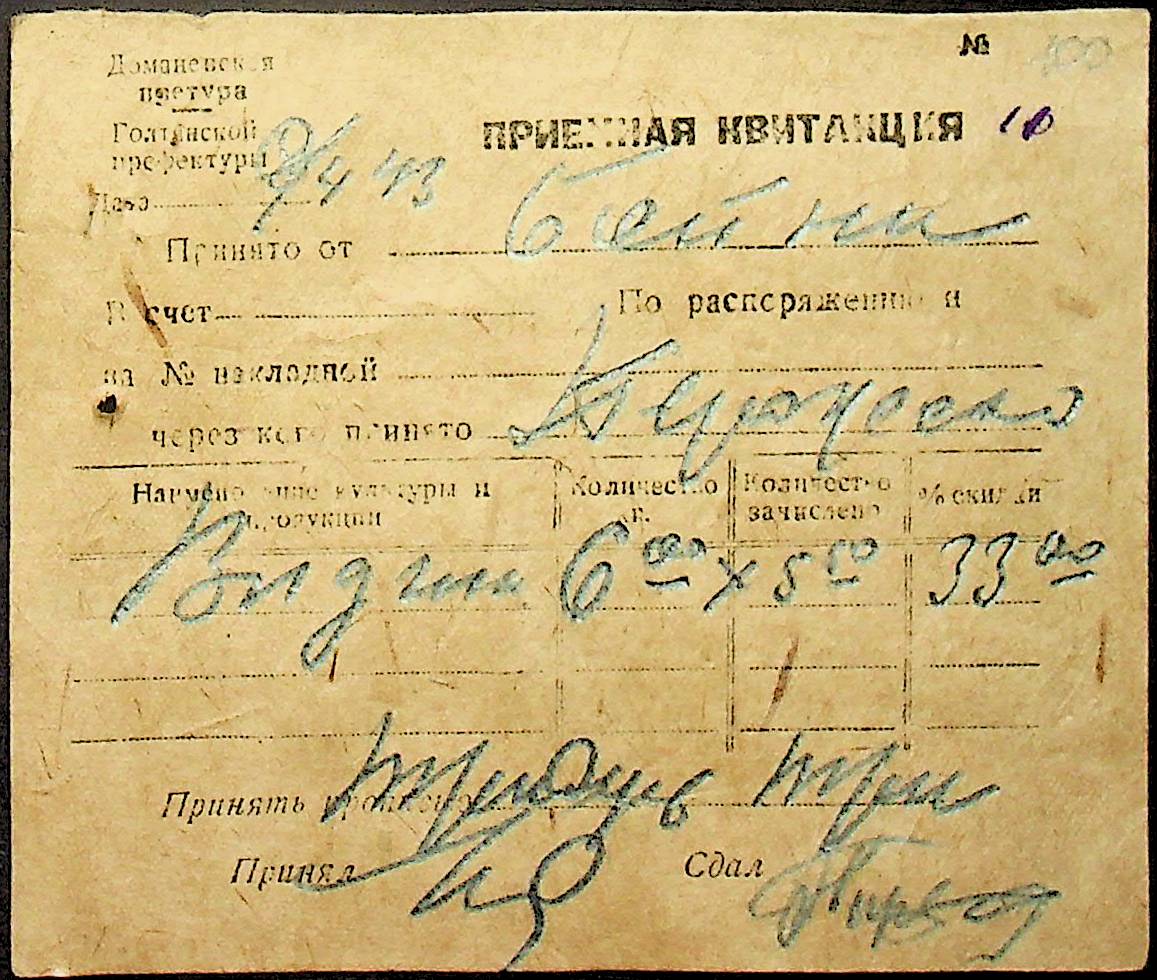 № 100
Доманевская
претура
Голтянской
префектуры
ПРИЕМНАЯ КВИТАНЦИЯ 10
Дата 9/4 43
Принято от
В счет По распоряжению и
на № накладной
через кого принято
Наименование культуры и продукции Количество кг. Количество зачислено % скидки
6 00 x 5 50 33 00
Принять прописью Тридцать три
Принял Сдал